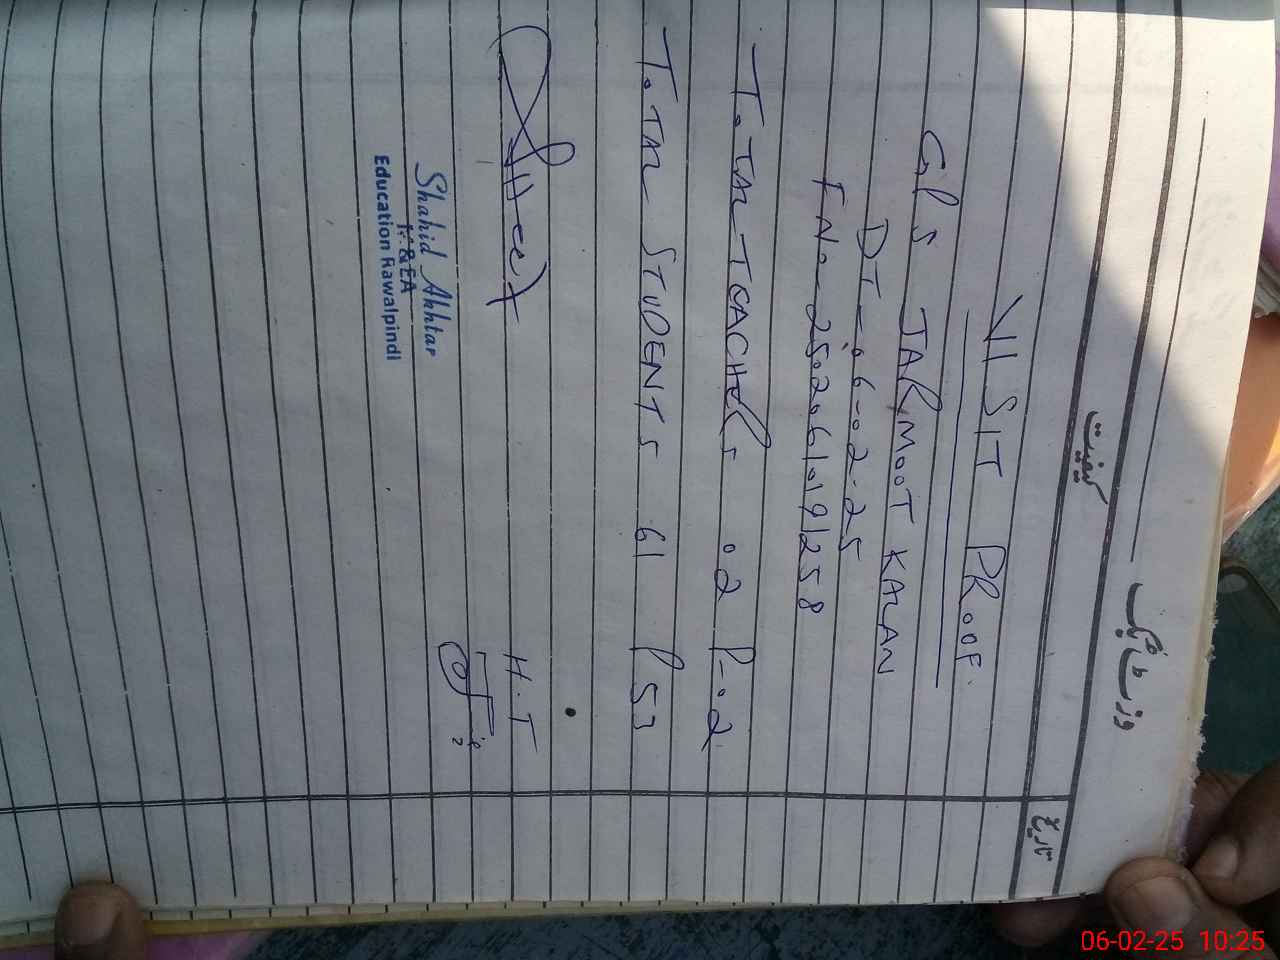 وزٹ طلبی
کیفیت
تاریخ
VISIT PROOF
GPS JARMOOT KALAN
DT-06-02-25
FN-2502061019258
TOTAL TEACHERS 02 P-02
TOTAL STUDENTS 61 P 53
H.T
Shahid Akhtar
M&EA
Education Rawalpindi
06-02-25 10:25